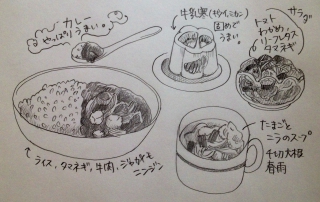 カレー
やっぱりうまい。
牛乳寒(キウイ、ミカン)
固めで
うまい。
サラダ
トマト
わかめ
リーフレタス
タマネギ
たまごと
ニラのスープ
千切大根
春雨
ライス、タマネギ、牛肉、ジャガイモ
ニンジン